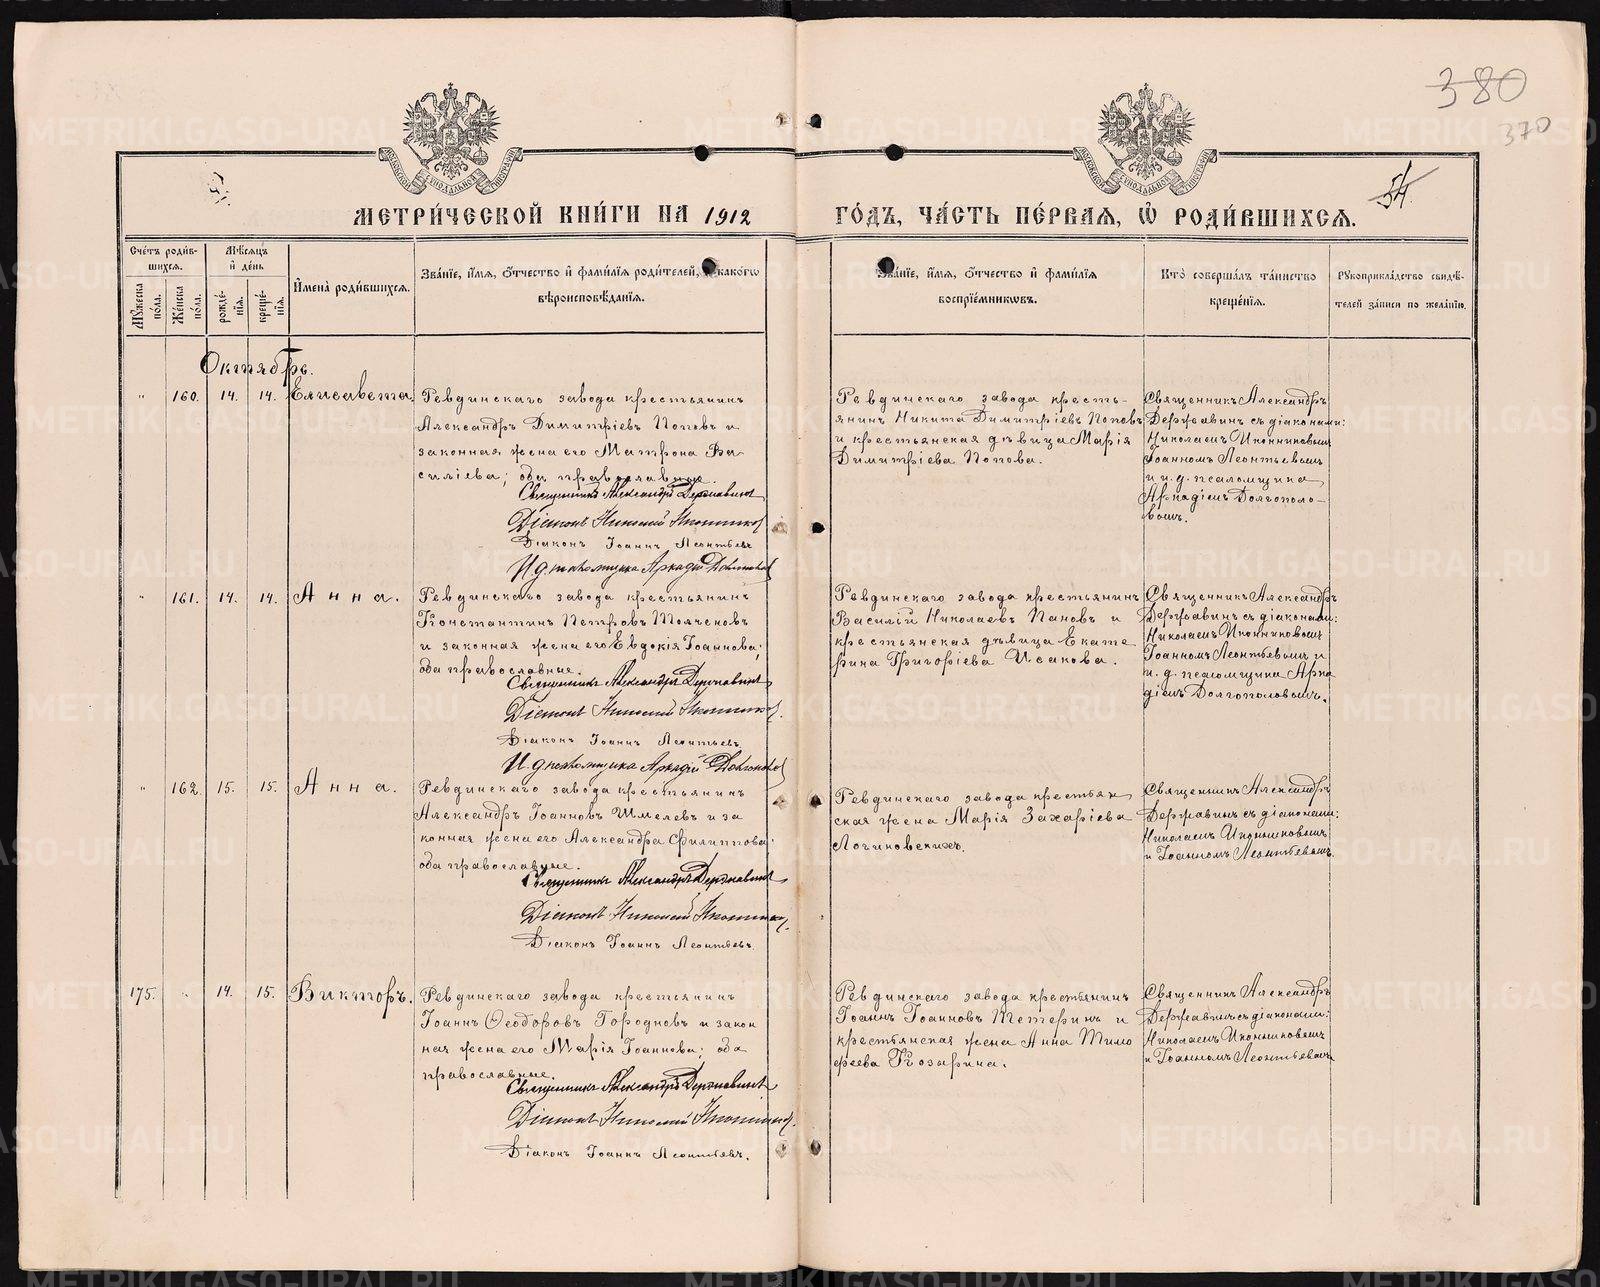 380
370
54.
МЕТРИ́ЧЕСКОЙ КНИ́ГИ НА 1912 ГО́ДЪ, ЧА́СТЬ ПЕ́РВАЯ, Ѡ РОДИ́ВШИХСЯ.
Сче́тъ роди́вшихся.
Мѣ́сяцъ и де́нь
Имена̀ роди́вшихся.
Зва́нїе, и́мя, о́тчество и фами́лїя роди́телей, и како́гѡ вѣроисповѣ́данїя.
Зва́нїе, и́мя, о́тчество и фами́лїя воспрїе́мникѡвъ.
Кто̀ соверша́лъ та́инство креще́нїя.
Рукоприкла́дство свидѣ́телей за́писи по жела́нїю.
Му́жеска по́ла.
Же́нска по́ла.
рожде́нїя.
креще́нїя.
Октябрь.
" 160. 14. 14. Елисавета.
Ревдинскаго завода крестьянинъ
Александръ Димитріевъ Поповъ и
законная жена его Матрона Ва-
силіева; оба православные.
Священникъ Александръ Державинъ
Діаконъ Николай Иконниковъ
Діаконъ Іоаннъ Леонтьевъ
И.д. псаломщика Аркадій Долгополовъ
Ревдинскаго завода кресть-
янинъ Никита Димитріевъ Поповъ
и крестьянская дѣвица Марія
Димитріева Попова.
Священникъ Александръ
Державинъ съ діаконами:
Николаемъ Иконниковымъ
Іоанномъ Леонтьевымъ
и и. д. псаломщика
Аркадіемъ Долгополо-
вымъ.
" 161. 14. 14. Анна.
Ревдинскаго завода крестьянинъ
Константинъ Петровъ Толченовъ
и законная жена его Евдокія Іоаннова;
оба православные.
Священникъ Александръ Державинъ
Діаконъ Николай Иконниковъ.
Діаконъ Іоаннъ Леонтьевъ
И.д. псаломщика Аркадій Долгополовъ
Ревдинскаго завода крестьянинъ
Василій Николаевъ Пановъ и
крестьянская дѣвица Екате
рина Григоріева Исакова.
Священникъ Александръ
Державинъ съ діаконами:
Николаемъ Иконниковымъ
Іоанномъ Леонтьевымъ и
и. д. псаломщика Арка
діемъ Долгополовымъ.
" 162. 15. 15. Анна.
Ревдинскаго завода крестьянинъ
Александръ Іоанновъ Шмелевъ и за
конная жена его Александра Филиппова;
оба православные.
Священникъ Александръ Державинъ
Діаконъ Николай Иконниковъ.
Діаконъ Іоаннъ Леонтьевъ.
Ревдинскаго завода крестьян
ская жена Марія Захаріева
Логиновскихъ.
Священникъ Александръ
Державинъ съ діаконами:
Николаемъ Иконниковымъ
и Іоанномъ Леонтьевымъ.
175. " 14. 15. Викторъ.
Ревдинскаго завода крестьянинъ
Іоаннъ Ѳеодоровъ Городновъ и закон
ная жена его Марія Іоаннова; оба
православные.
Священникъ Александръ Державинъ
Діаконъ Николай Иконниковъ.
Діаконъ Іоаннъ Леонтьевъ.
Ревдинскаго завода крестьянинъ
Іоаннъ Іоанновъ Тетеринъ и
крестьянская жена Анна Тимо
феева Козырина.
Священникъ Александръ
Державинъ съ діаконами:
Николаемъ Иконниковымъ
и Іоанномъ Леонтьевымъ
METRIKI.GASO-URAL.RU